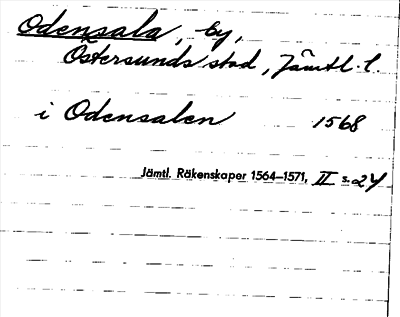 Odensala, by,
Östersunds stad, Jämtl. l.
i Odensalen 1568
Jämtl. Räkenskaper 1564–1571, II s. 24